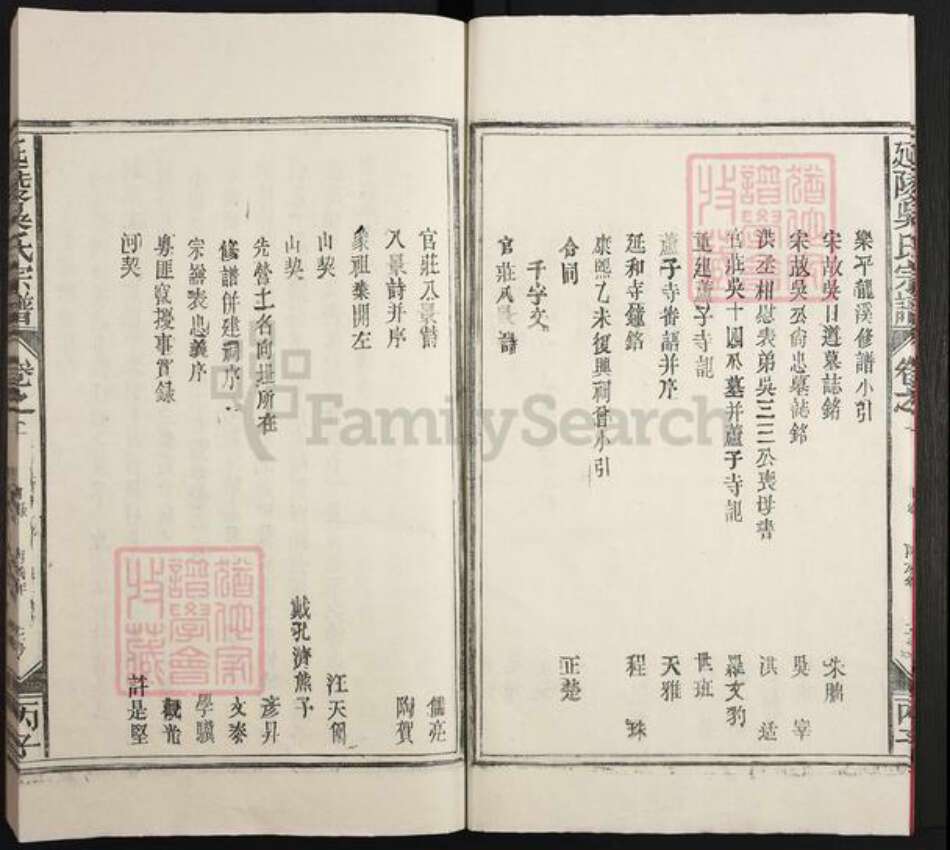 延陵吳氏宗譜 卷之
樂平龍溪修譜小引
宋故吳日遵墓誌銘 朱鵬
宋故吳公尙忠墓誌銘 吳宰
洪丞相慰表弟吳三三公喪母書 洪适
官莊吳十四公墓并蘆子寺記 羅文豹
重建蘆子寺記 世班
蘆子寺眷語并序 天雅
延和寺鐘銘 程珠
康熙乙未復興祠會小引
合同 正楚
千字文
官莊八景詩
官莊八景詩 儒亮
八景詩并序 陶賓
象祖葉開左
山契 汪天
山契 戴孔濟熊予
先塋土名向址所在 彥昇
修譜併建祠序 文泰
宗譜表忠義序 學驥
粵匪竄擾事實錄 觀光
河契 許是堅
延陵吳氏宗譜 卷之
FamilySearch
譜學會
收藏